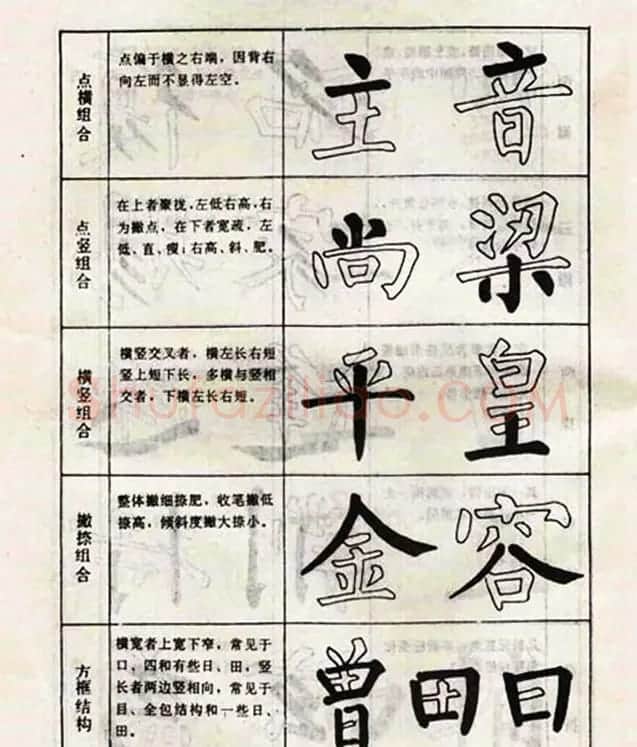 点横组合
点偏于横之右端，因背右
向左而不显得左空。
主 音
点竖组合
在上者聚拢，左低右高，右
为撇点，在下者宽疏，左
低、直、瘦；右高、斜、肥。
尚 梁
横竖组合
横竖交叉者，横左长右短
竖上短下长，多横与竖相
交者，下横左长右短。
平 皇
撇捺组合
整体撇细捺肥，收笔撇低
捺高，倾斜度撇大捺小。
金 容
方框结构
横宽者上宽下窄，常见于
口、四和有些日、田，竖
长者两边竖相向，常见于
目、全包结构和一些日、
田。
曾 田 曰